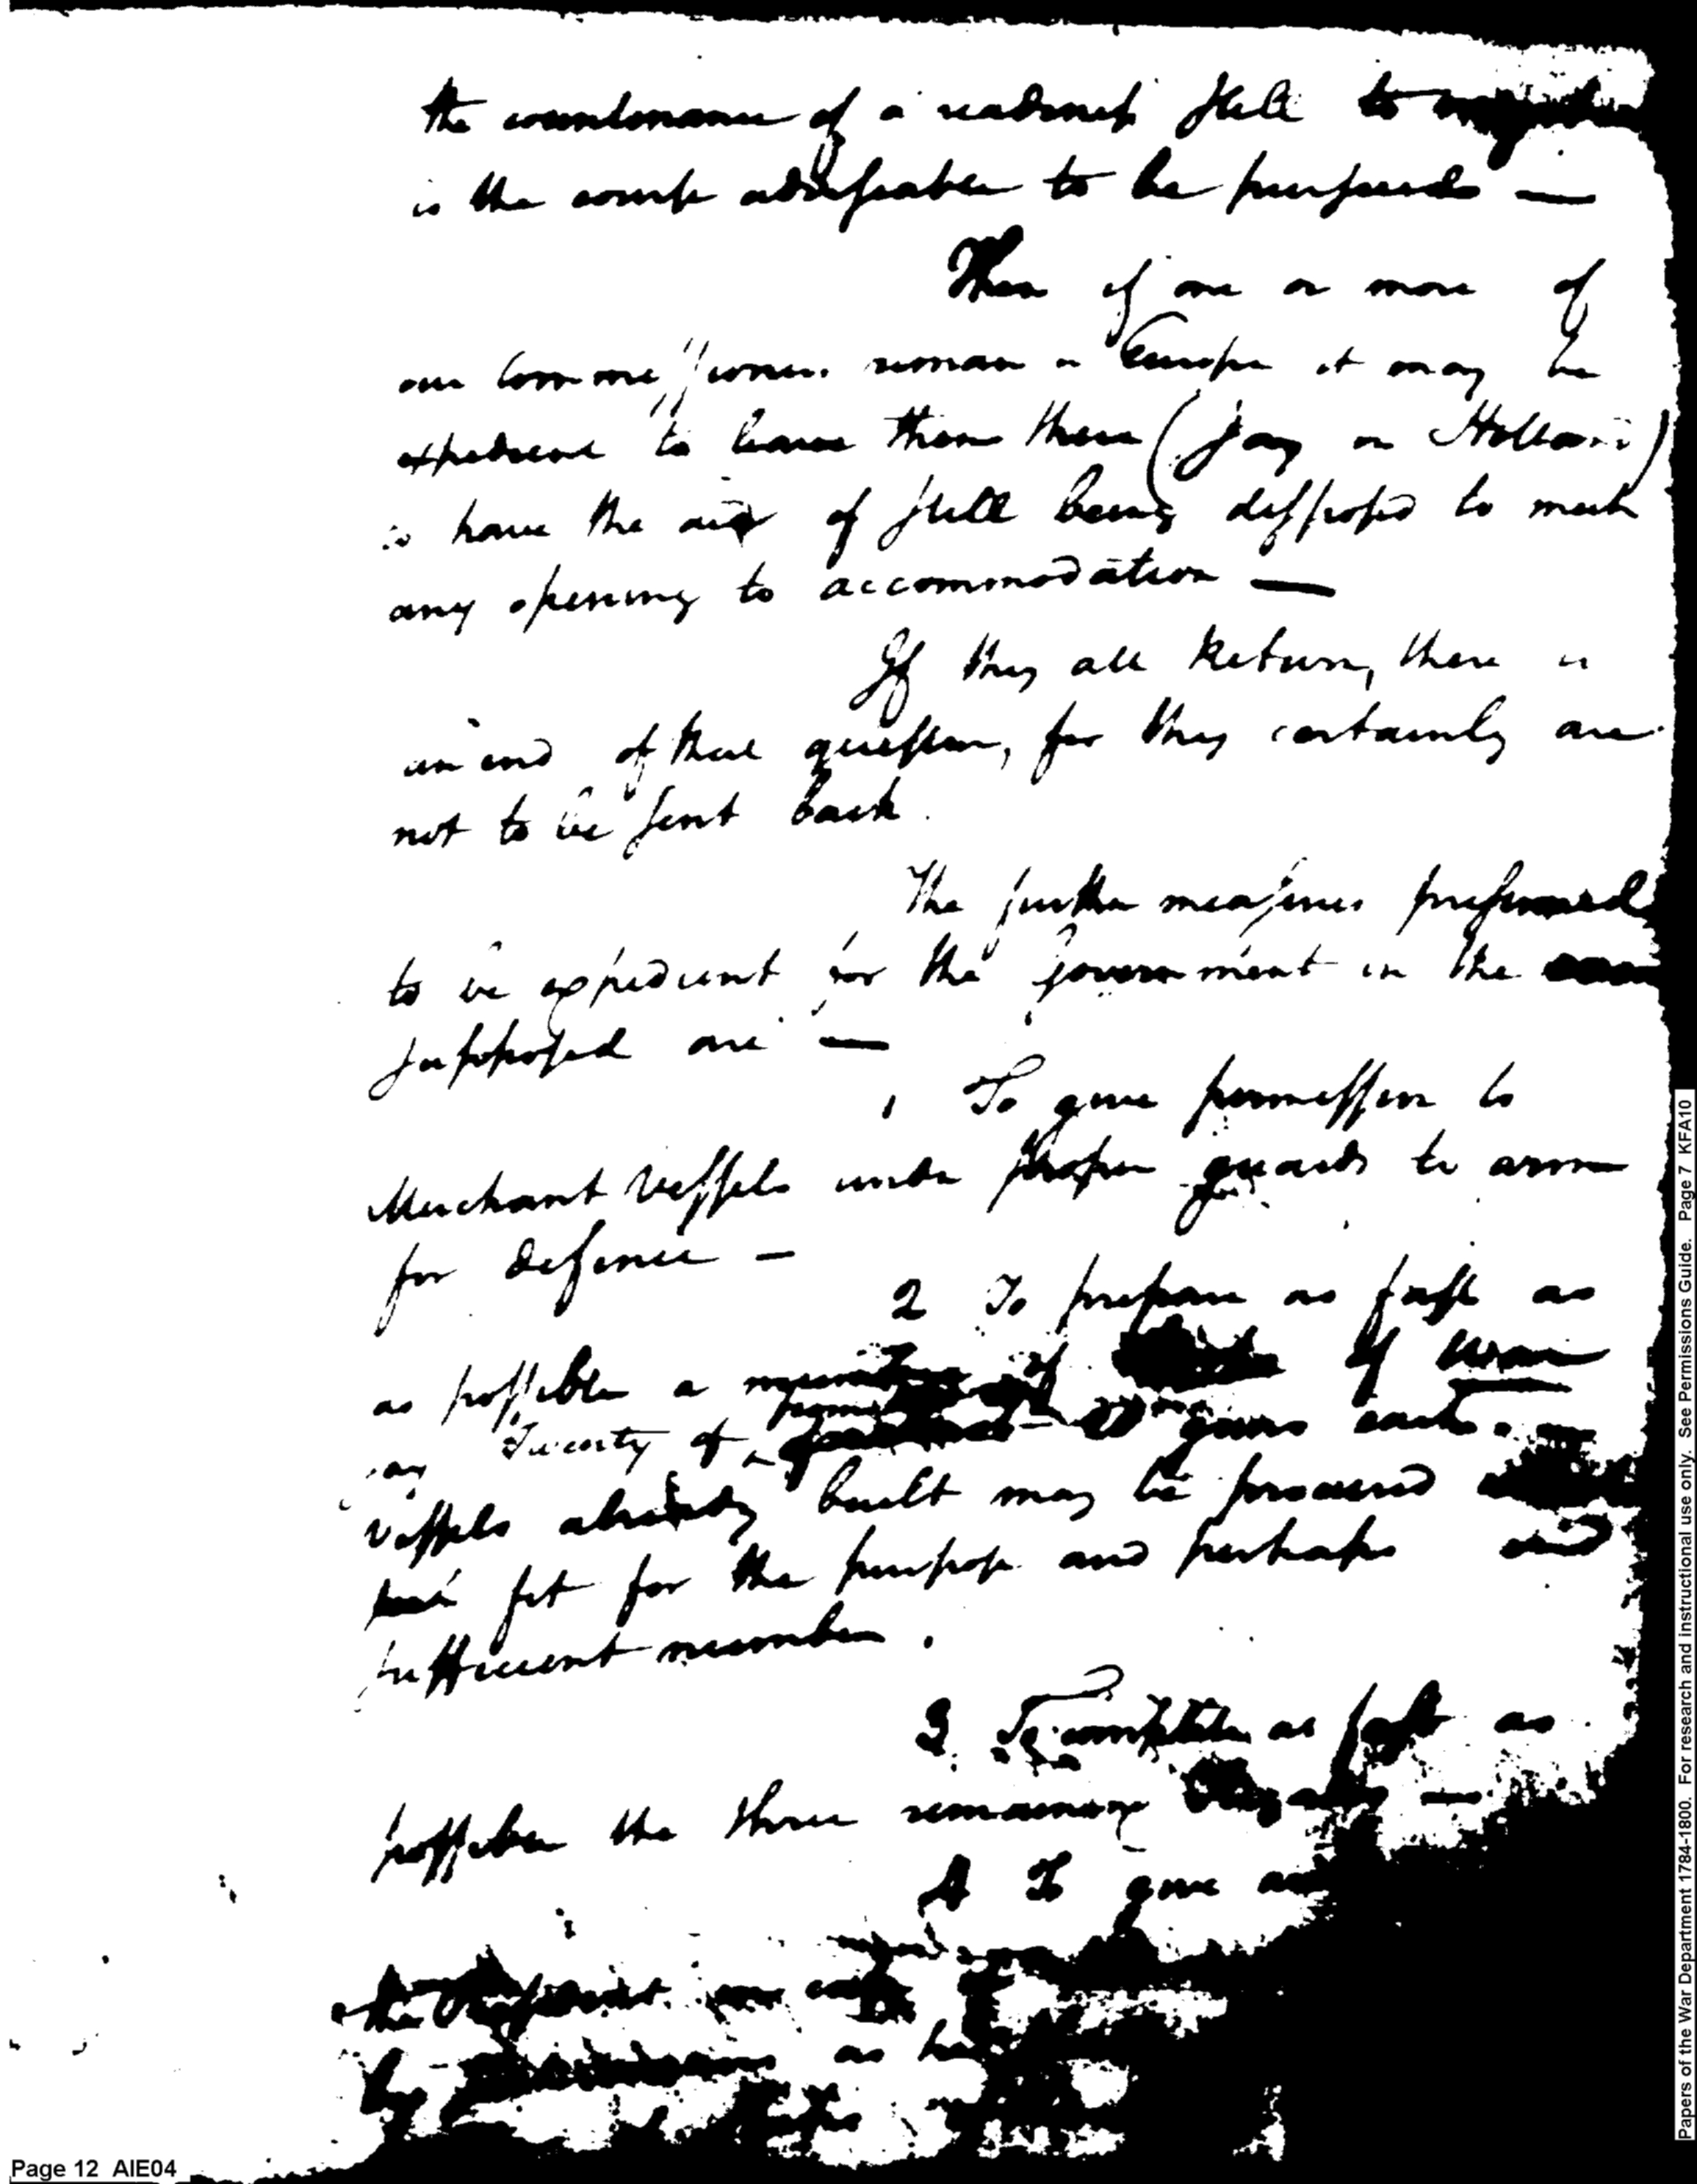 the countenance of a readiness still to
is the course adviseable to be pursued —
Then if one or more of
our Commissioners remain in Europe it may be
expedient to leave them there (say in Holland)
to have the air of still being disposed to meet
any opening to accommodation —
If they all Return, there is
an end of that question, for they certainly are
not to be sent back.
The further measures presumed
to be expedient for the Government in the
supposed are —
1 To give permission to
Merchant Vessels under proper guards to arm
for defence —
2 To prepare as fast as
as possible a number of of war
say Twenty of guns each.
Vessels already built may be procured
fit for the purpose and perhaps in
sufficient number.
3 To complete as fast as
possible the three remaining
4 To give
the President
by as he
Page 12 AIE04
Papers of the War Department 1784-1800. For research and instructional use only. See Permissions Guide. Page 7 KFA10